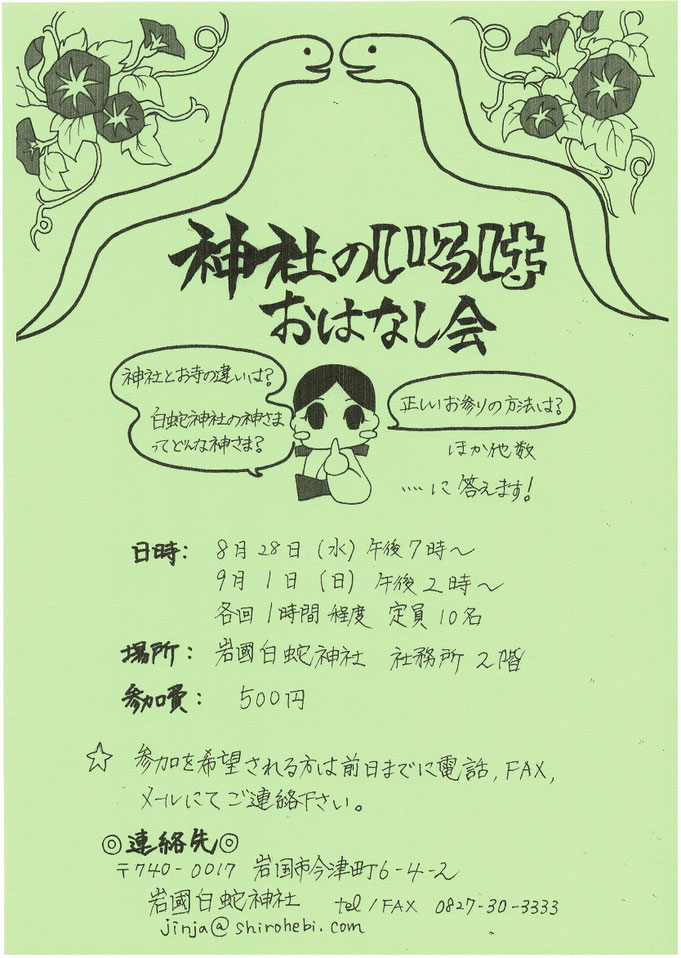 神社のいろは
おはなし会
神社とお寺の違いは?
白蛇神社の神さま
ってどんな神さま?
正しいお参りの方法は?
ほか他数
‥‥に答えます!
日時: 8月28日(水)午後7時〜
9月1日(日)午後2時〜
各回1時間程度 定員10名
場所: 岩國白蛇神社 社務所2階
参加費: 500円
☆ 参加を希望される方は前日までに電話,FAX,
メールにてご連絡下さい。
◎連絡先◎
〒740-0017 岩国市今津町6-4-2
岩國白蛇神社 tel/FAX 0827-30-3333
jinja@shirohebi.com